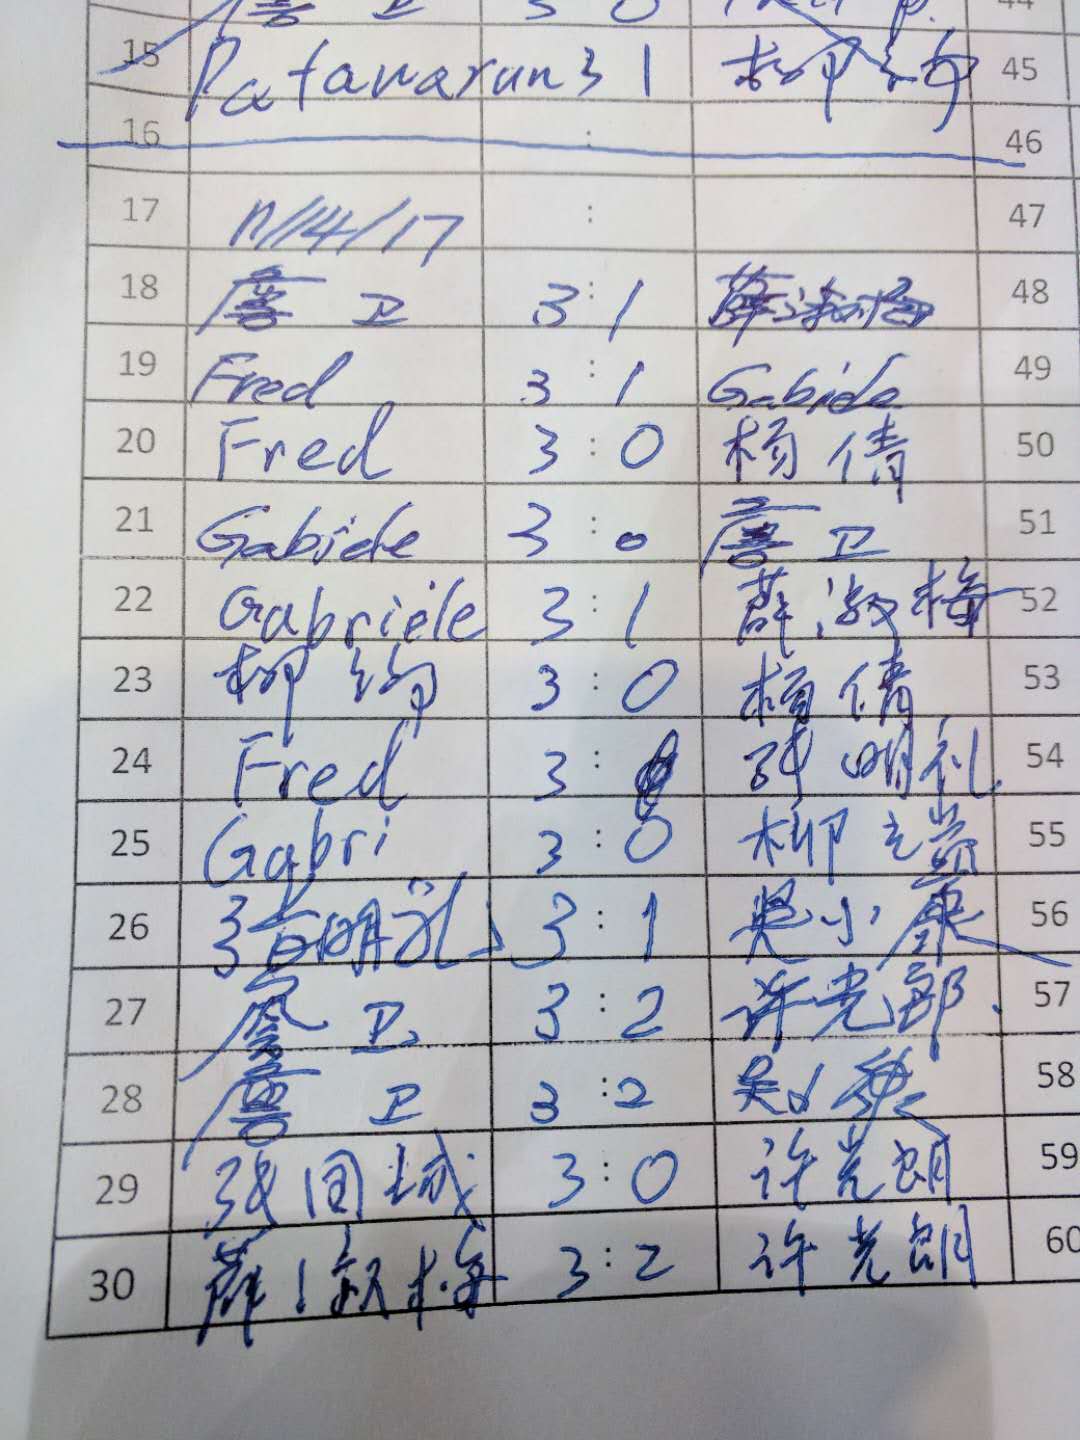 3 0 44
15 Patanarun 3 1 柳 45
16 : 46
17 11/4/17 : 47
18 詹 卫 3 : 1 薛淑梅 48
19 Fred 3 : 1 Gabide 49
20 Fred 3 : 0 杨倩 50
21 Gabide 3 : 0 詹 卫 51
22 Gabriele 3 : 1 薛淑梅 52
23 柳 3 : 0 杨倩 53
24 Fred 3 : 明礼 54
25 Gabri 3 : 0 柳 55
26 明礼 3 : 1 吴小康 56
27 詹 卫 3 : 2 许光郎 57
28 詹 卫 3 : 2 吴小康 58
29 张国城 3 : 0 许光朗 59
30 薛淑梅 3 : 2 许光朗 60